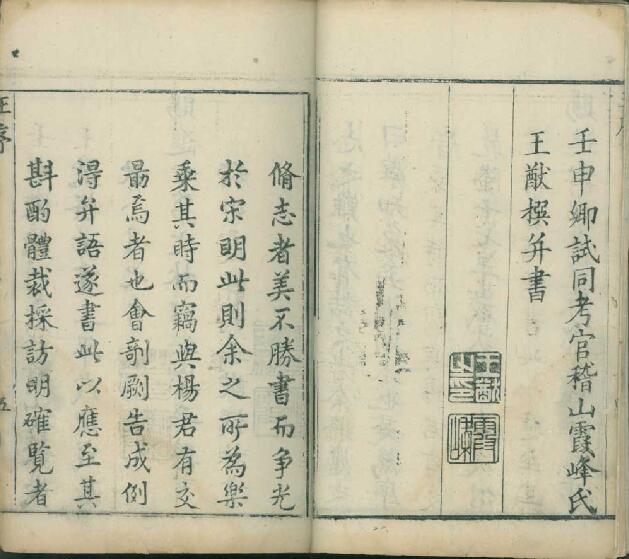 壬申鄉試同考官稽山霞峰氏
王猷撰并書
王猷之印
脩志者美不勝書而爭光
於宋明此則余之所為樂
乘其時而竊與楊君有交
最焉者也會剞劂告成例
得弁語遂書此以應至其
斟酌體裁採訪明確覽者
王序
五